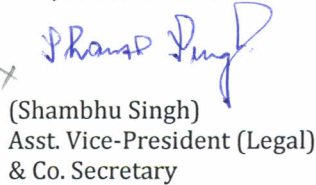 (Shambhu Singh)
Asst. Vice-President (Legal)
& Co. Secretary